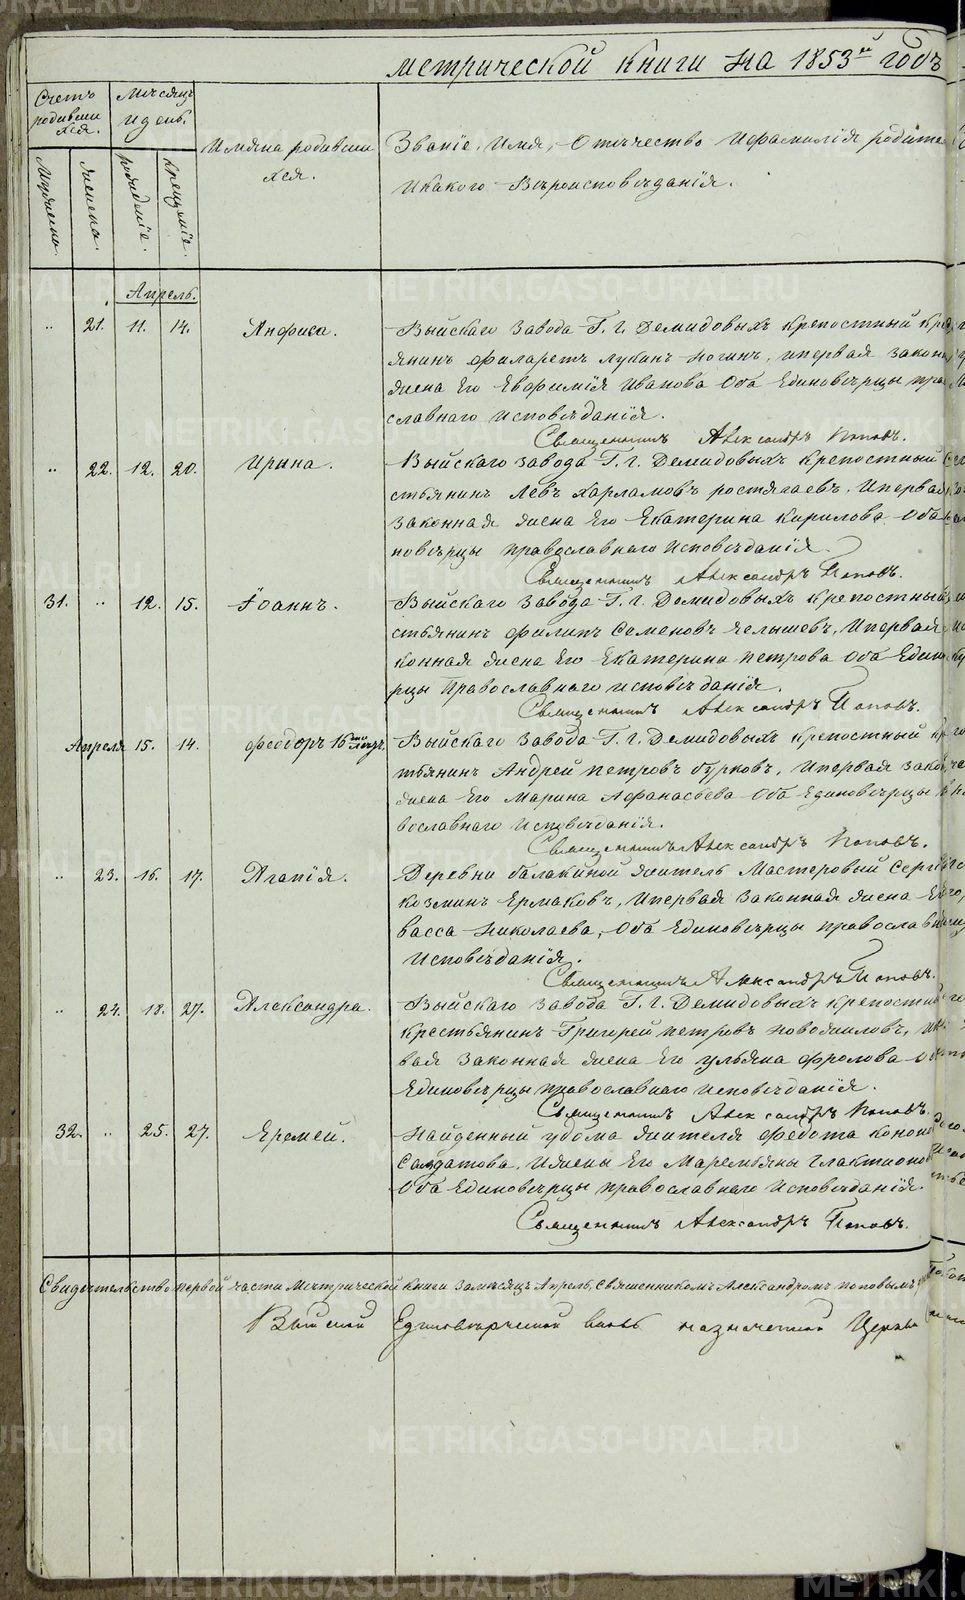 метрической книги на 1853й годъ
Счетъ родившихся.
Мѣсяцъ и день.
Имяна родившихся.
Званіе, Имя, Отечество Ифамилія родите
Икакого Вѣроисповѣданія.
Мужеска.
Женска.
рожденіе.
крещеніе.
Апрель.
„ 21. 11. 14. Анфиса. Выйскаго завода Г. г. Демидовыхъ крепостный кре
янинъ филаретъ лукинъ Ногинъ, ипервая закон
жена Его Евфимія Иванова Оба Единовѣрцы пра
славнаго исповѣданія.
Священникъ Александръ Поповъ.
„ 22. 12. 20. Ирина. Выйскаго завода Г. г. Демидовыхъ крепостный
стьянинъ Левъ Харламовъ ростягаевъ, Ипервая
законная жена Его Екатерина Кирилова Оба
новѣрцы православнаго Исповѣданія.
Священникъ Александръ Поповъ.
31. „ 12. 15. Іоаннъ. Выйскаго завода Г. г. Демидовыхъ крепостный
стьянинъ филипъ Семеновъ челышевъ, Ипервая
конная жена Его Екатерина петрова Оба Един
рцы Православнаго исповѣданія.
Священникъ Александръ Поповъ.
Апреля 15. 14. феодоръ 16 Выйскаго завода Г. г. Демидовыхъ крепостный
тьянинъ Андрей петровъ бурковъ, Ипервая зако
жена Его Марина Афанасьева Оба Единовѣрцы
вославнаго Исповѣданія.
Священникъ Александръ Поповъ.
„ 23. 16. 17. Агапія. Деревни балакиной житель Мастеровый Серги
козминъ Ермаковъ, Ипервая законная жена Е
васса Николаева, Оба Единовѣрцы православн
Исповѣданія.
Священникъ Александръ Поповъ.
„ 24. 18. 27. Александра. Выйскаго завода Г. г. Демидовыхъ крепостны
крестьянинъ Григорей петровъ новожиловъ, Ипе
вая законная жена Его ульяна фролова О
Единовѣрцы православнаго исповѣданія.
Священникъ Александръ Поповъ.
32. „ 25. 27. Еремей. Найденный удома жителя федота конон
Салдатова, Ижены Его Маремьяны Глактионов
Оба Единовѣрцы православнаго Исповѣданія.
Священникъ Александръ Поповъ.
Свидетельство первой части Метрической книги замесяцъ Апрель, Священникомъ Александромъ поповымъ
Выйской Единоверческой вновь назначенной Церкви
METRIKI.GASO-URAL.RU